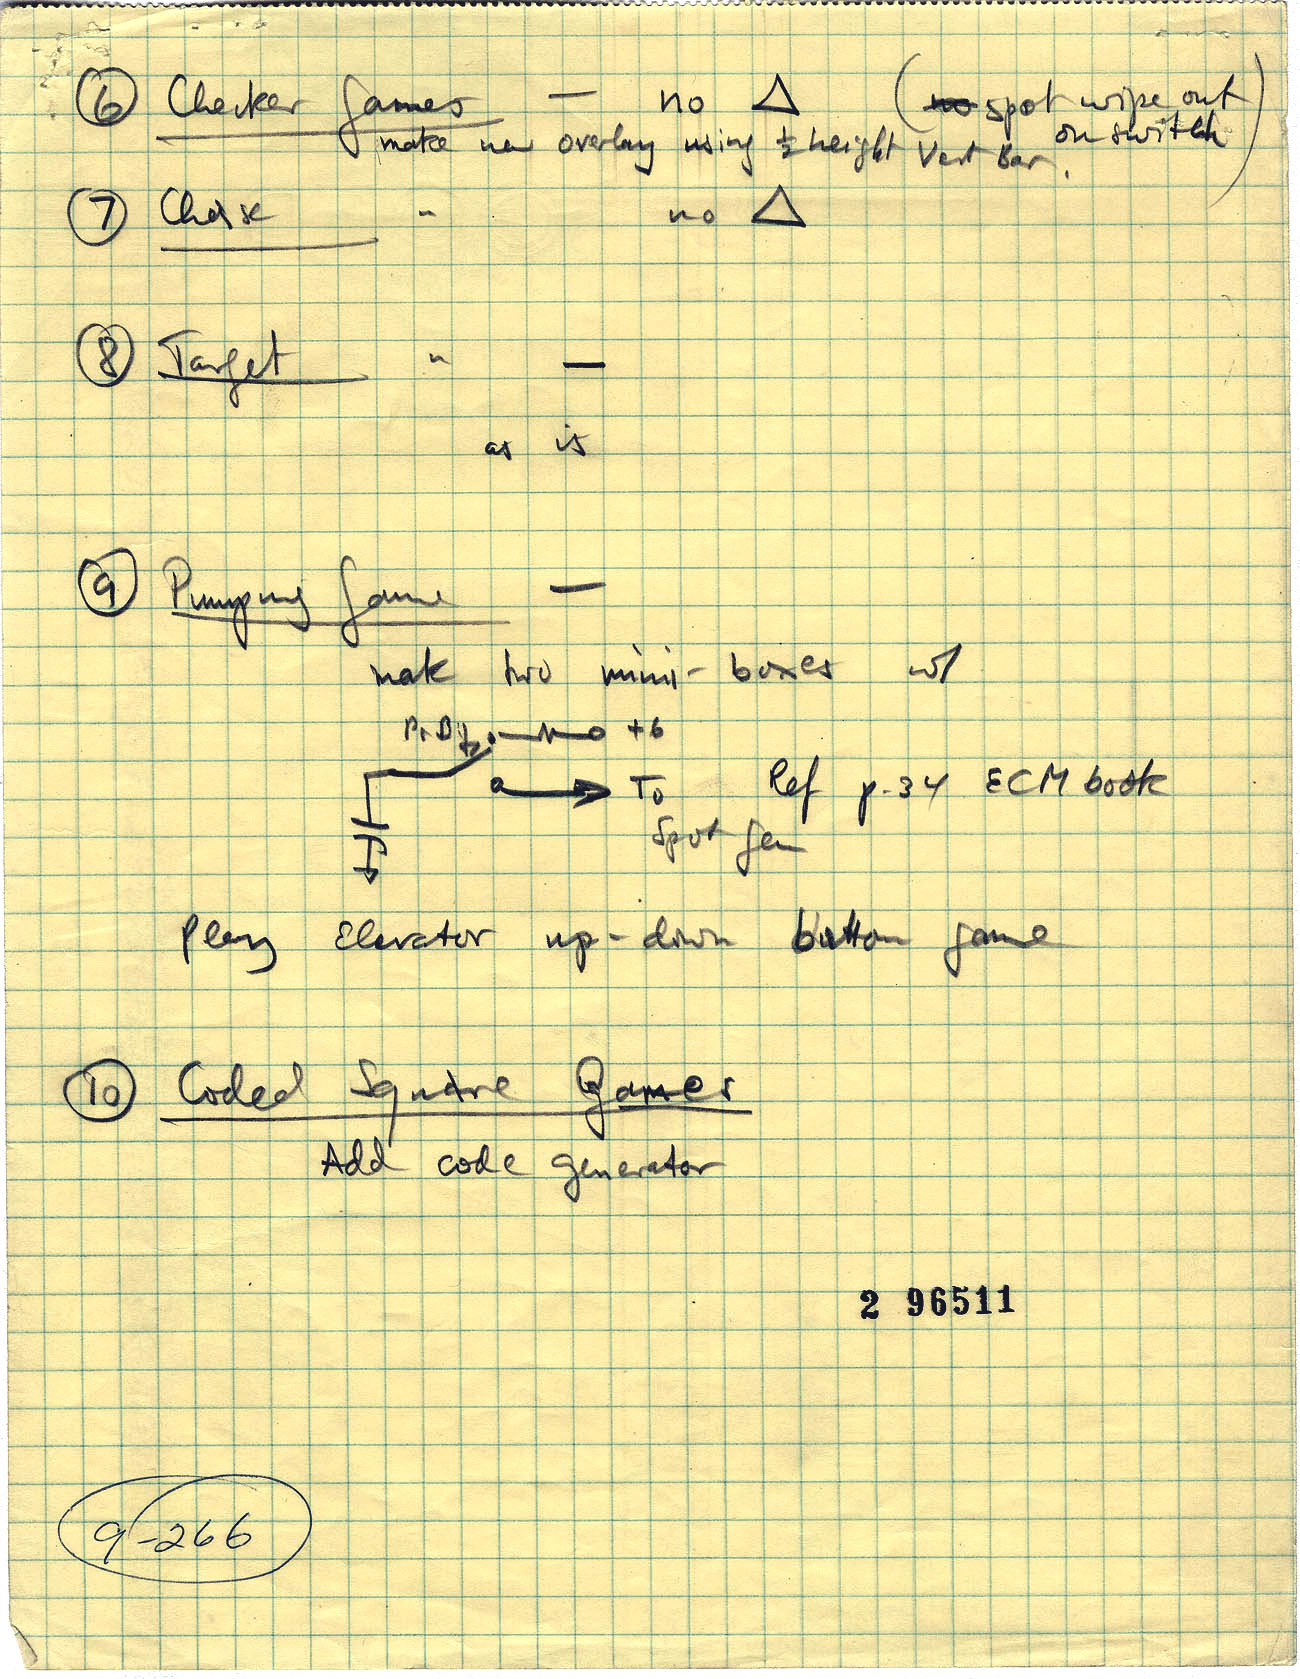 6 Checker Games — no △ (no spot wipe out on switch)
make new overlay using ½ height Vert Bar.
7 Chase " no △
8 Target " —
as is
9 Pumping Game —
make two mini-boxes w/
P.B. +6
To Spot Gen Ref p.34 ECM book
Play Elevator up-down button game
10 Coded Square Games
Add code generator
2 96511
9-266